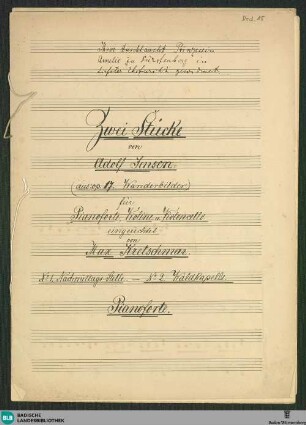 Don. 15
Ihrer Durchlaucht Prinzessin
Amelie zu Fürstenberg in
tiefster Ehrfurcht gewidmet
Zwei Stücke
von
Adolf Jensen.
(aus op. 17. Wanderbilder)
für
Pianoforte, Violine u. Violoncello
eingerichtet
von
Max Kretschmar.
No 1. Nachmittags Stille. — No 2. Waldkapelle.
Pianoforte.
BLB BADISCHE
LANDESBIBLIOTHEK
Baden-Württemberg